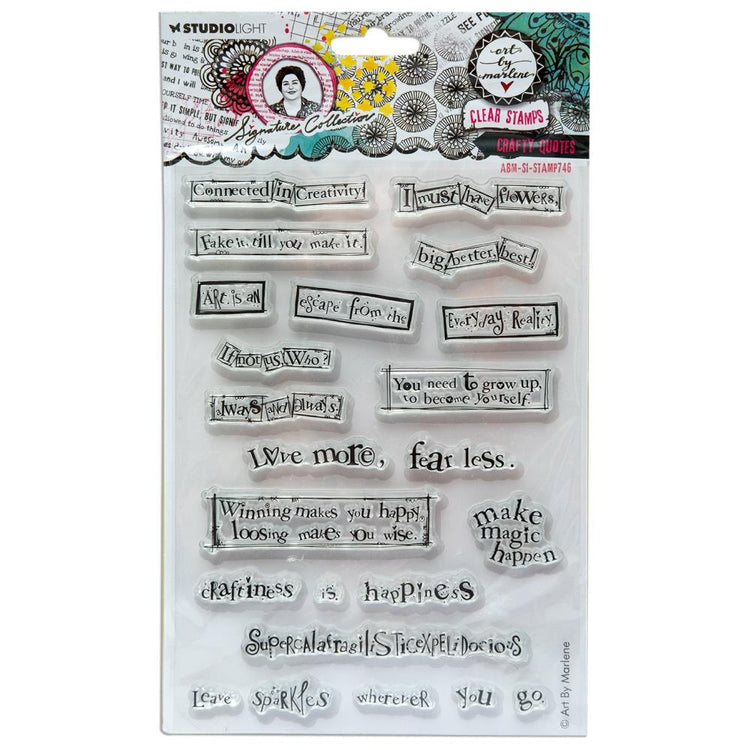 STUDIOLIGHT
Signature Collection
art
by
marlene
CLEAR STAMPS
CRAFTY QUOTES
ABM-SI-STAMP746
SEE
YOURSELF TIME
IT SIMPLE, BUT SIGNIF
Connected in Creativity!
I must have flowers,
Fake it, till you make it.
big, better, best!
Art. is an
escape from the
Everyday Reality.
If not us, Who?!
You need to grow up,
to become yourself.
always and always.
Love more, fear less.
Winning makes you happy,
loosing makes you wise.
make
magic
happen
craftiness is happiness
Supercalafragilisticexpelidocious
Leave sparkles wherever you go.
© Art By Marlene